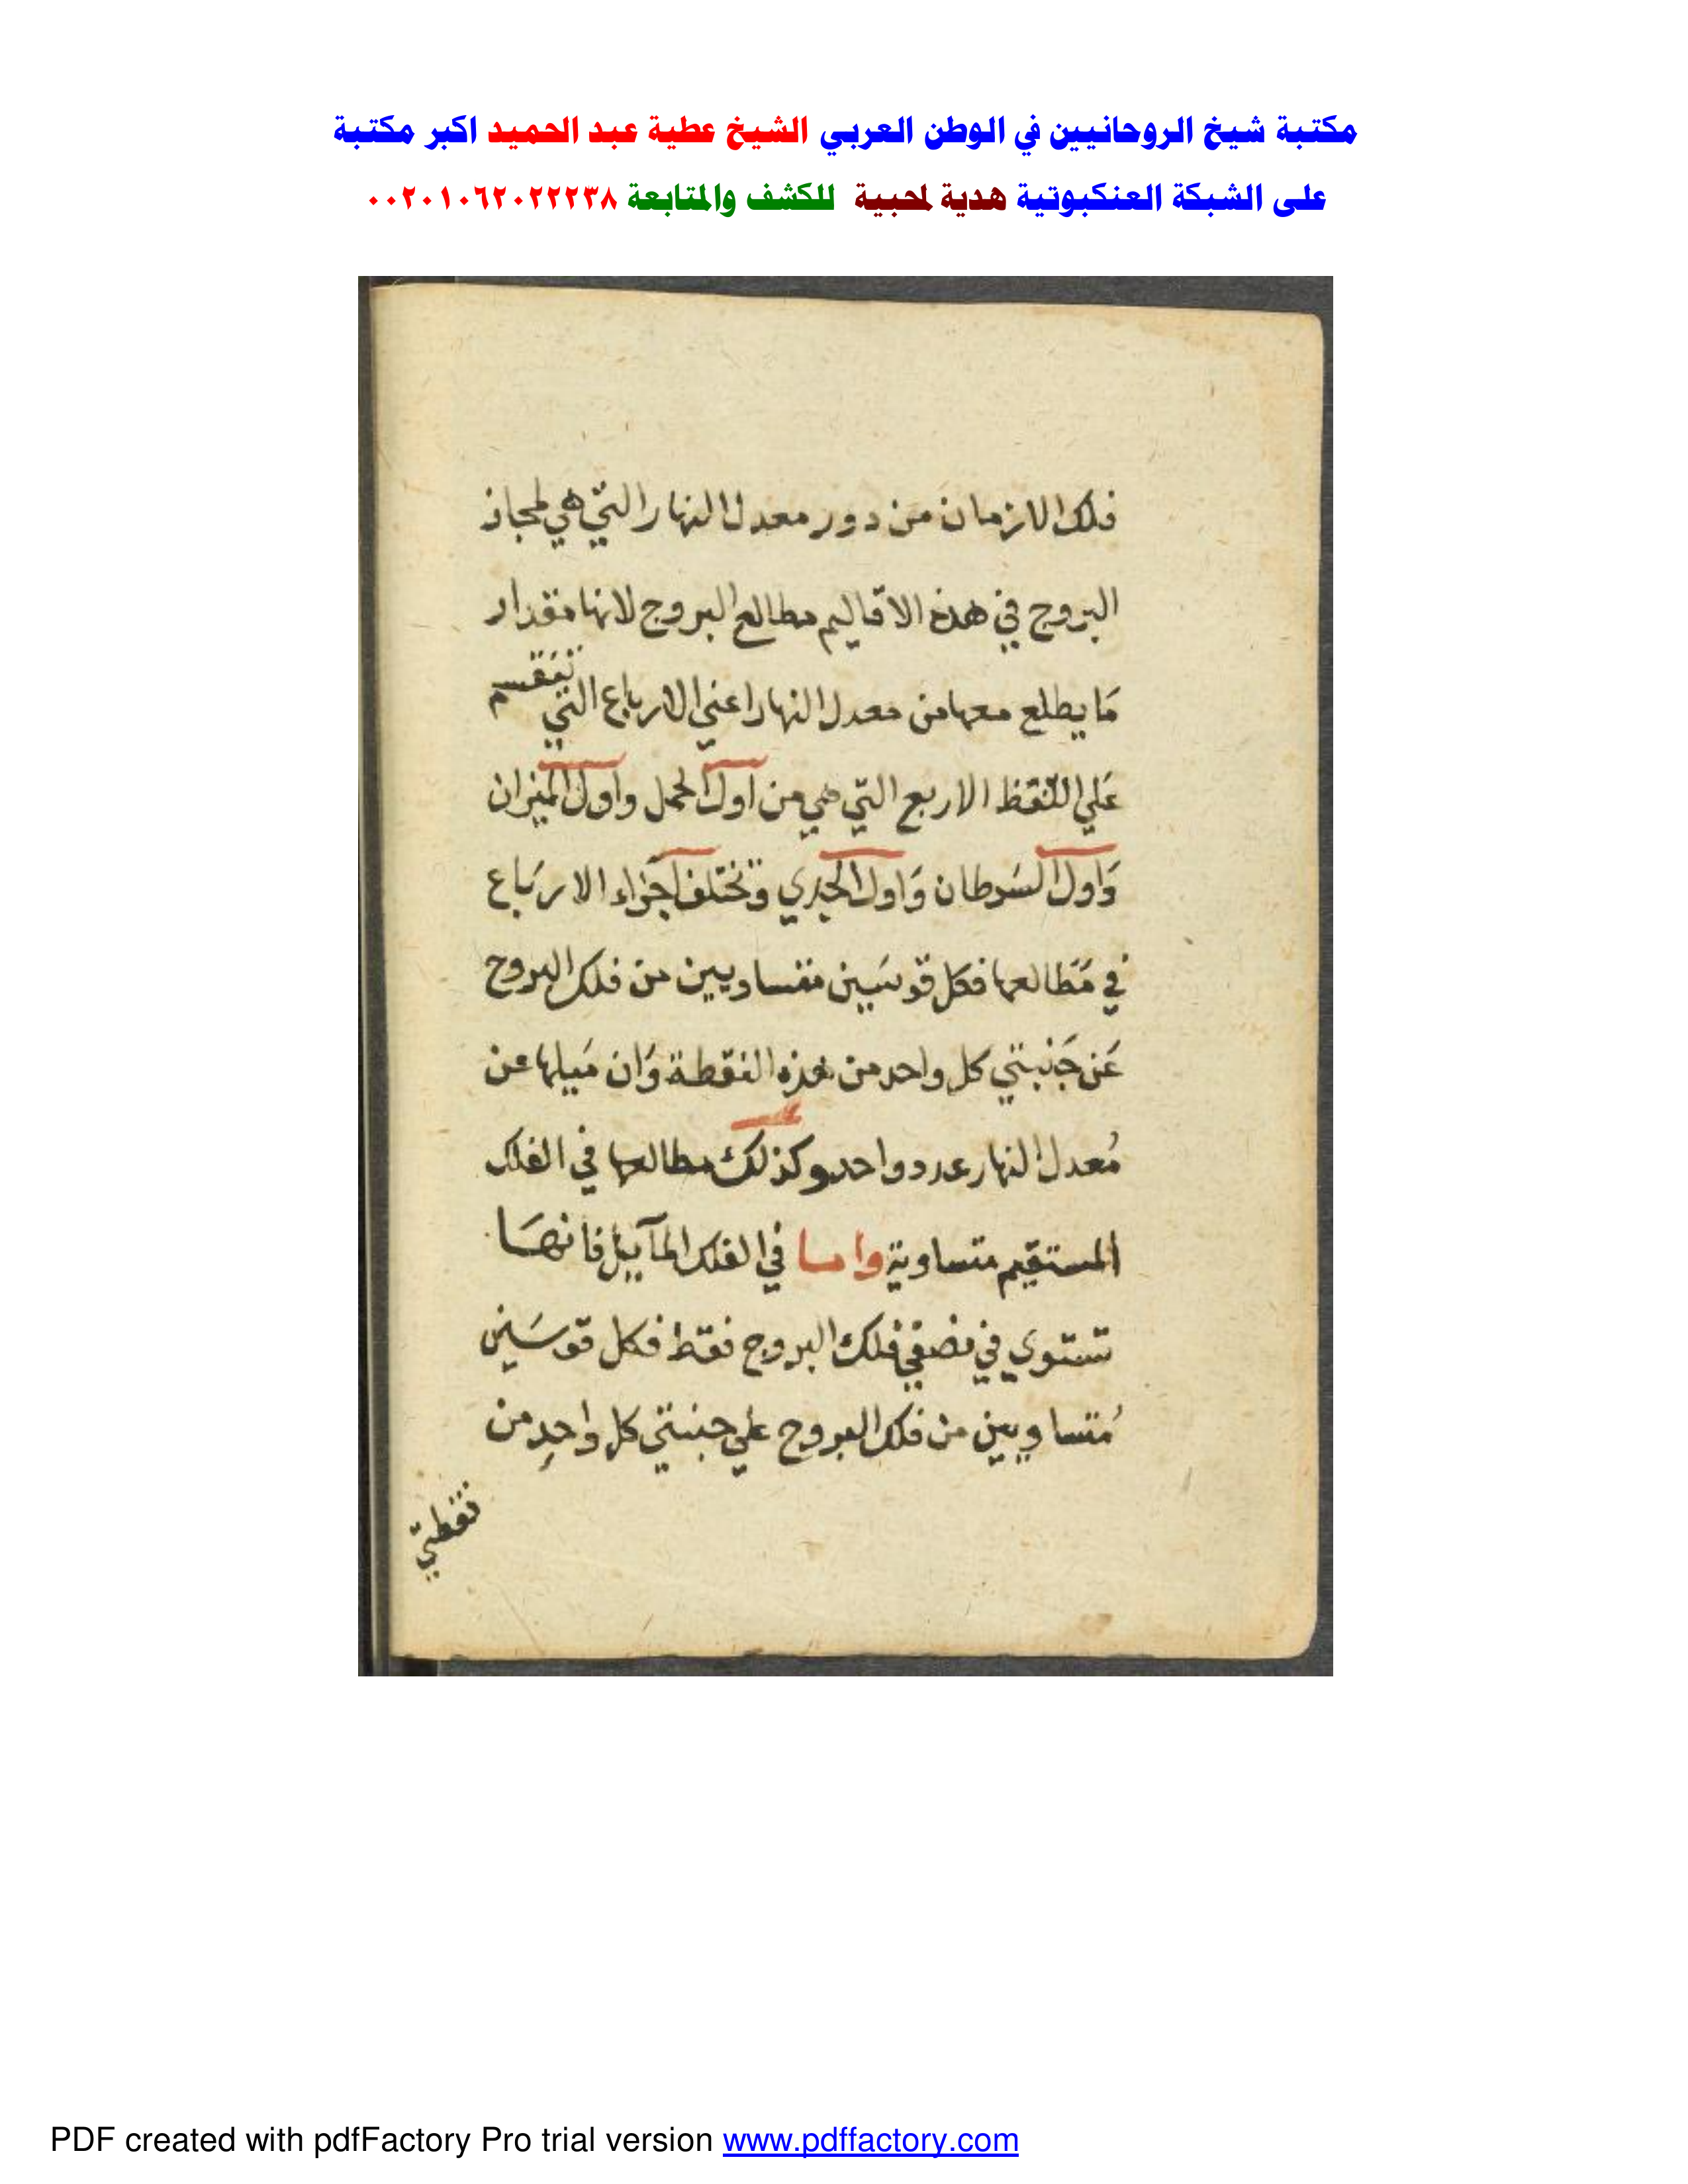 مكتبة شيخ الروحانيين في الوطن العربي الشيخ عطية عبد الحميد اكبر مكتبة
على الشبكة العنكبوتية هدية لمحبية للكشف والمتابعة ٠٠٢٠١٠٦٢٠٢٢٢٣٨
فلك الازمان من دور معدل النهار التي هي لمجاز
البروج في هذه الاقاليم مطالع البروج لانها مقدار
مَا يطلع معها من معدل النهار اعني الارباع التي تنقسم
عَلي النقط الاربع التي هي من اول الحمل واول الميزان
وَاول السَرطان وَاول الجدي وتختلف اجزاء الاربَاع
في مَطالعها فكل قوسَين متساويين من فلك البروج
عَن جَنبتي كل واحد من هذه النقطة وَان مَيلها عن
مُعدل النهار عدد واحد وكذلك مطالعها في الفلك
المستقيم متساوية واما في الفلك المآيل فانهَا
تستوي في نصفي فلك البروج فقط فكل قوسَين
مُتساويين من فلك البروج علي جنبتي كل واحدِ من
نقطتي
PDF created with pdfFactory Pro trial version www.pdffactory.com